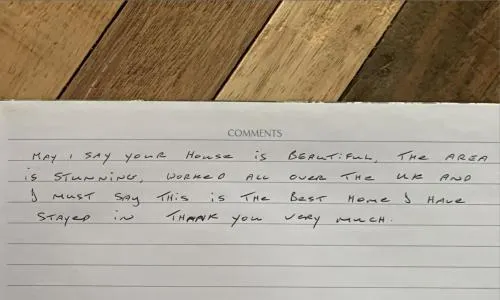 COMMENTS
MAY I SAY YOUR HOUSE IS BEAUTIFUL, THE AREA
IS STUNNING, WORKED ALL OVER THE UK AND
I MUST SAY THIS IS THE BEST HOME I HAVE
STAYED IN THANK YOU VERY MUCH.